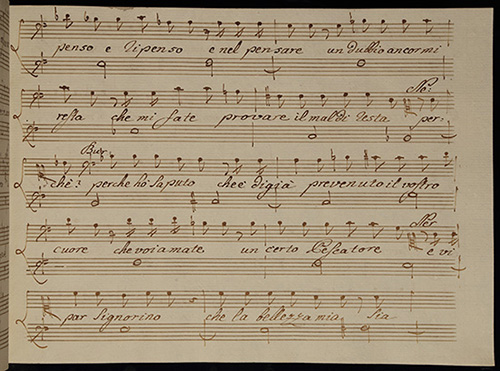 penso e ripenso e nel pensare un dubbio ancor mi
Ne:
resta che mi fate provare il mal di testa per:
Buor
chè? perche ho saputo che è di già prevenuto il vostro
Ner
cuore che voi amate un certo Pescatore e vi
par Signorino che la bellezza mia sia